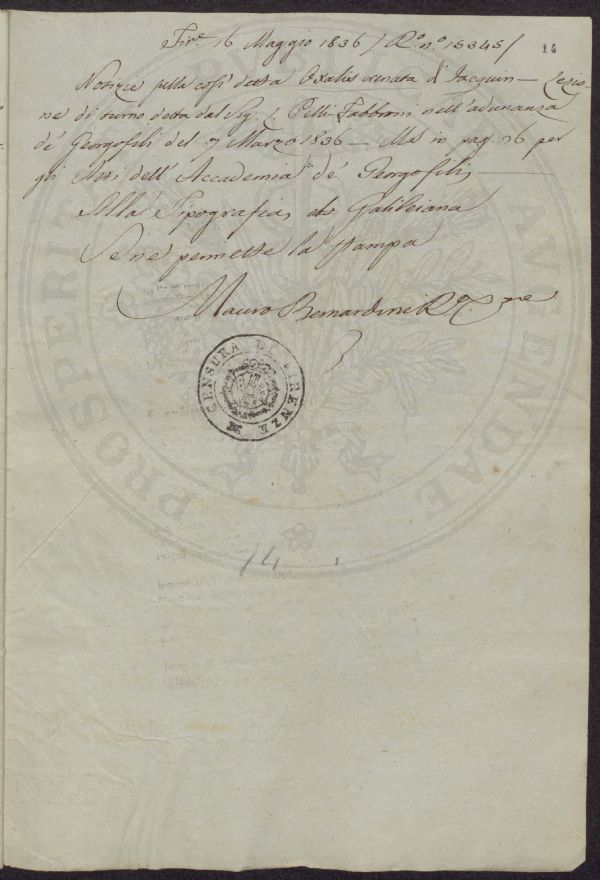 14
Fire. 16 Maggio 1836 / R.o n.o 15345 /
Notizie sulla così detta Oxalis crenata di Jacquin — Lezio-
ne di turno detta dal Sig. Pelli-Fabbroni nell'adunanza
de' Georgofili del 7 Marzo 1836 — MS in pag. 26 per
gli Atti dell'Accademia de' Georgofili —
Alla Tipografia Galileiana
Se ne permette la stampa
Mauro Bernardini R.o
CENSURA DI FIRENZE
14.
PROSPERITATI AUGENDAE